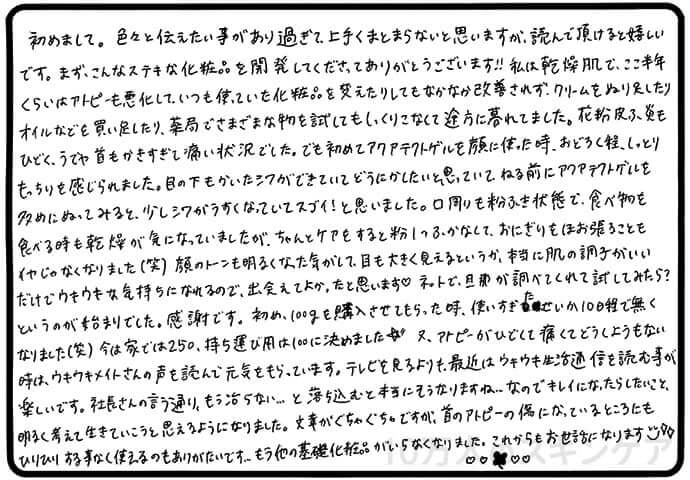 初めまして。色々と伝えたい事があり過ぎて、上手くまとまらないと思いますが、読んで頂けると嬉しい
です。まず、こんなステキな化粧品を開発してくださってありがとうございます!!私は乾燥肌で、ここ半年
くらいはアトピーも悪化して、いつも使っていた化粧品を変えたりしてもなかなか改善されず、クリームをぬり足したり
オイルなどを買い足したり、薬局でさまざまな物を試してもしっくりこなくて途方に暮れてました。花粉皮ふ炎も
ひどく、うでや首もかきすぎて痛い状況でした。でも初めてアクアテクトゲルを顔に使った時、おどろく程、しっとり
もっちりを感じられました。目の下もかいたシワができていてどうにかしたいと思っていて、ねる前にアクアテクトゲルを
多めにぬってみると、少しシワがうすくなっていてスゴイ!と思いました。口周りも粉ふき状態で、食べ物を
食べる時も乾燥が気になっていましたが、ちゃんとケアをすると粉1つふかなくて、おにぎりもほお張ることも
イヤじゃなくなりました(笑)顔のトーンも明るくなった気がして、目も大きく見えるというか、本当に肌の調子がいい
だけでウキウキな気持ちになれるので、出会えてよかったと思います♡ネットで、旦那が調べてくれて試してみたら?
というのが始まりでした。感謝です。初め、100gを購入させてもらった時、使いすぎたせいか10日程で無く
なりました(笑)今は家では250、持ち運び用は100に決めました 又、アトピーがひどくて痛くてどうしようもない
時は、ウキウキメイトさんの声を読んで元気をもらっています。テレビを見るよりも、最近はウキウキ生活通信を読む事が
楽しいです。社長さんの言う通り、もう治らない…と落ち込むと本当にそうなりますね…なのでキレイになったらしたいこと、
明るく考えて生きていこうと思えるようになりました。文章がぐちゃぐちゃですが、首のアトピーの傷になっているところにも
ひりひりする事なく使えるのもありがたいです…もう他の基礎化粧品がいらなくなりました。これからもお世話になります♡♡